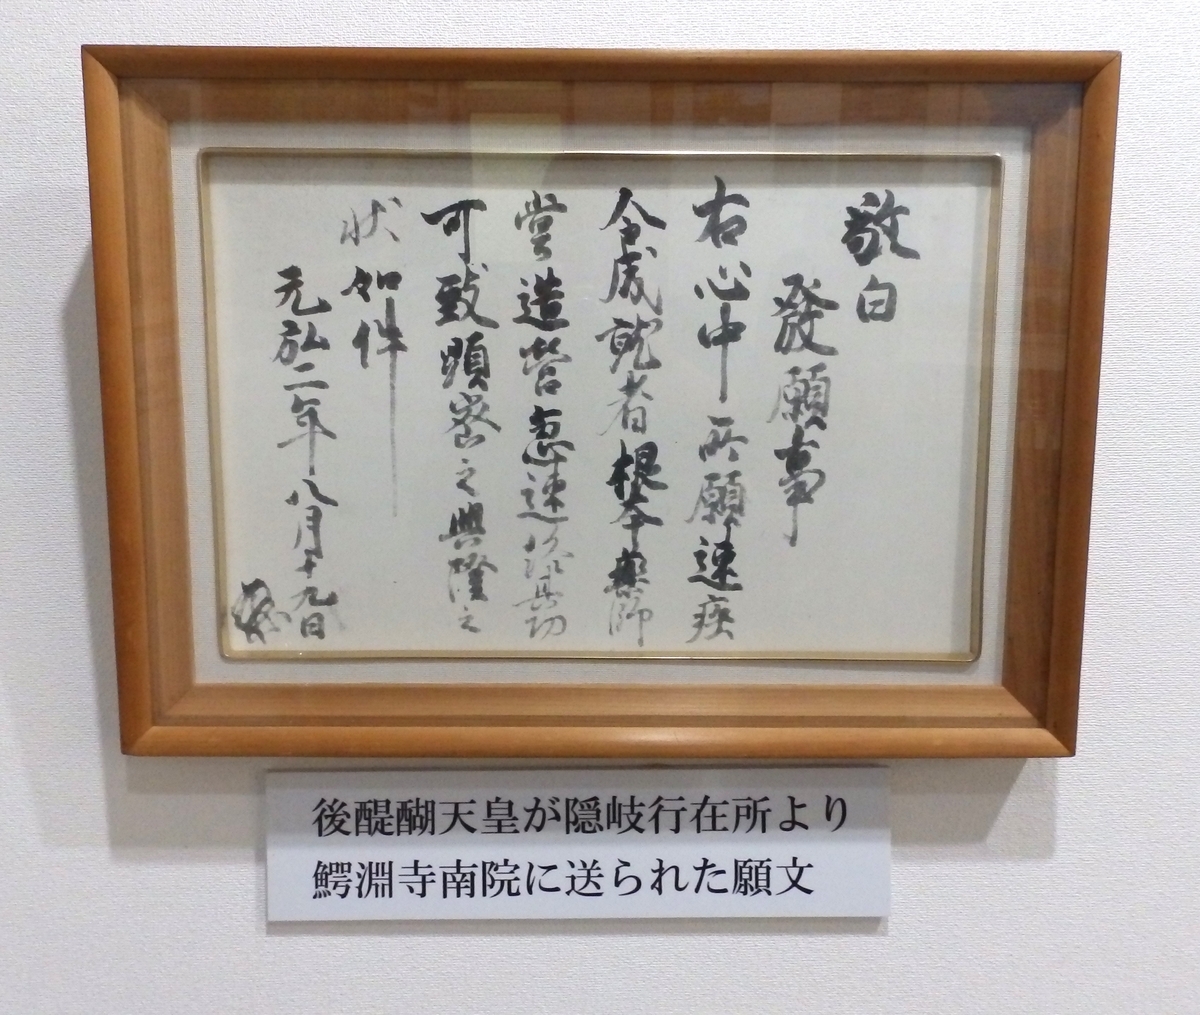 敬白
發願事
右心中所願速疾
令成就者根本薬師
堂造營急速終其功
可致顕密之興隆之
状如件
元弘二年八月十九日
後醍醐天皇が隠岐行在所より
鰐淵寺南院に送られた願文